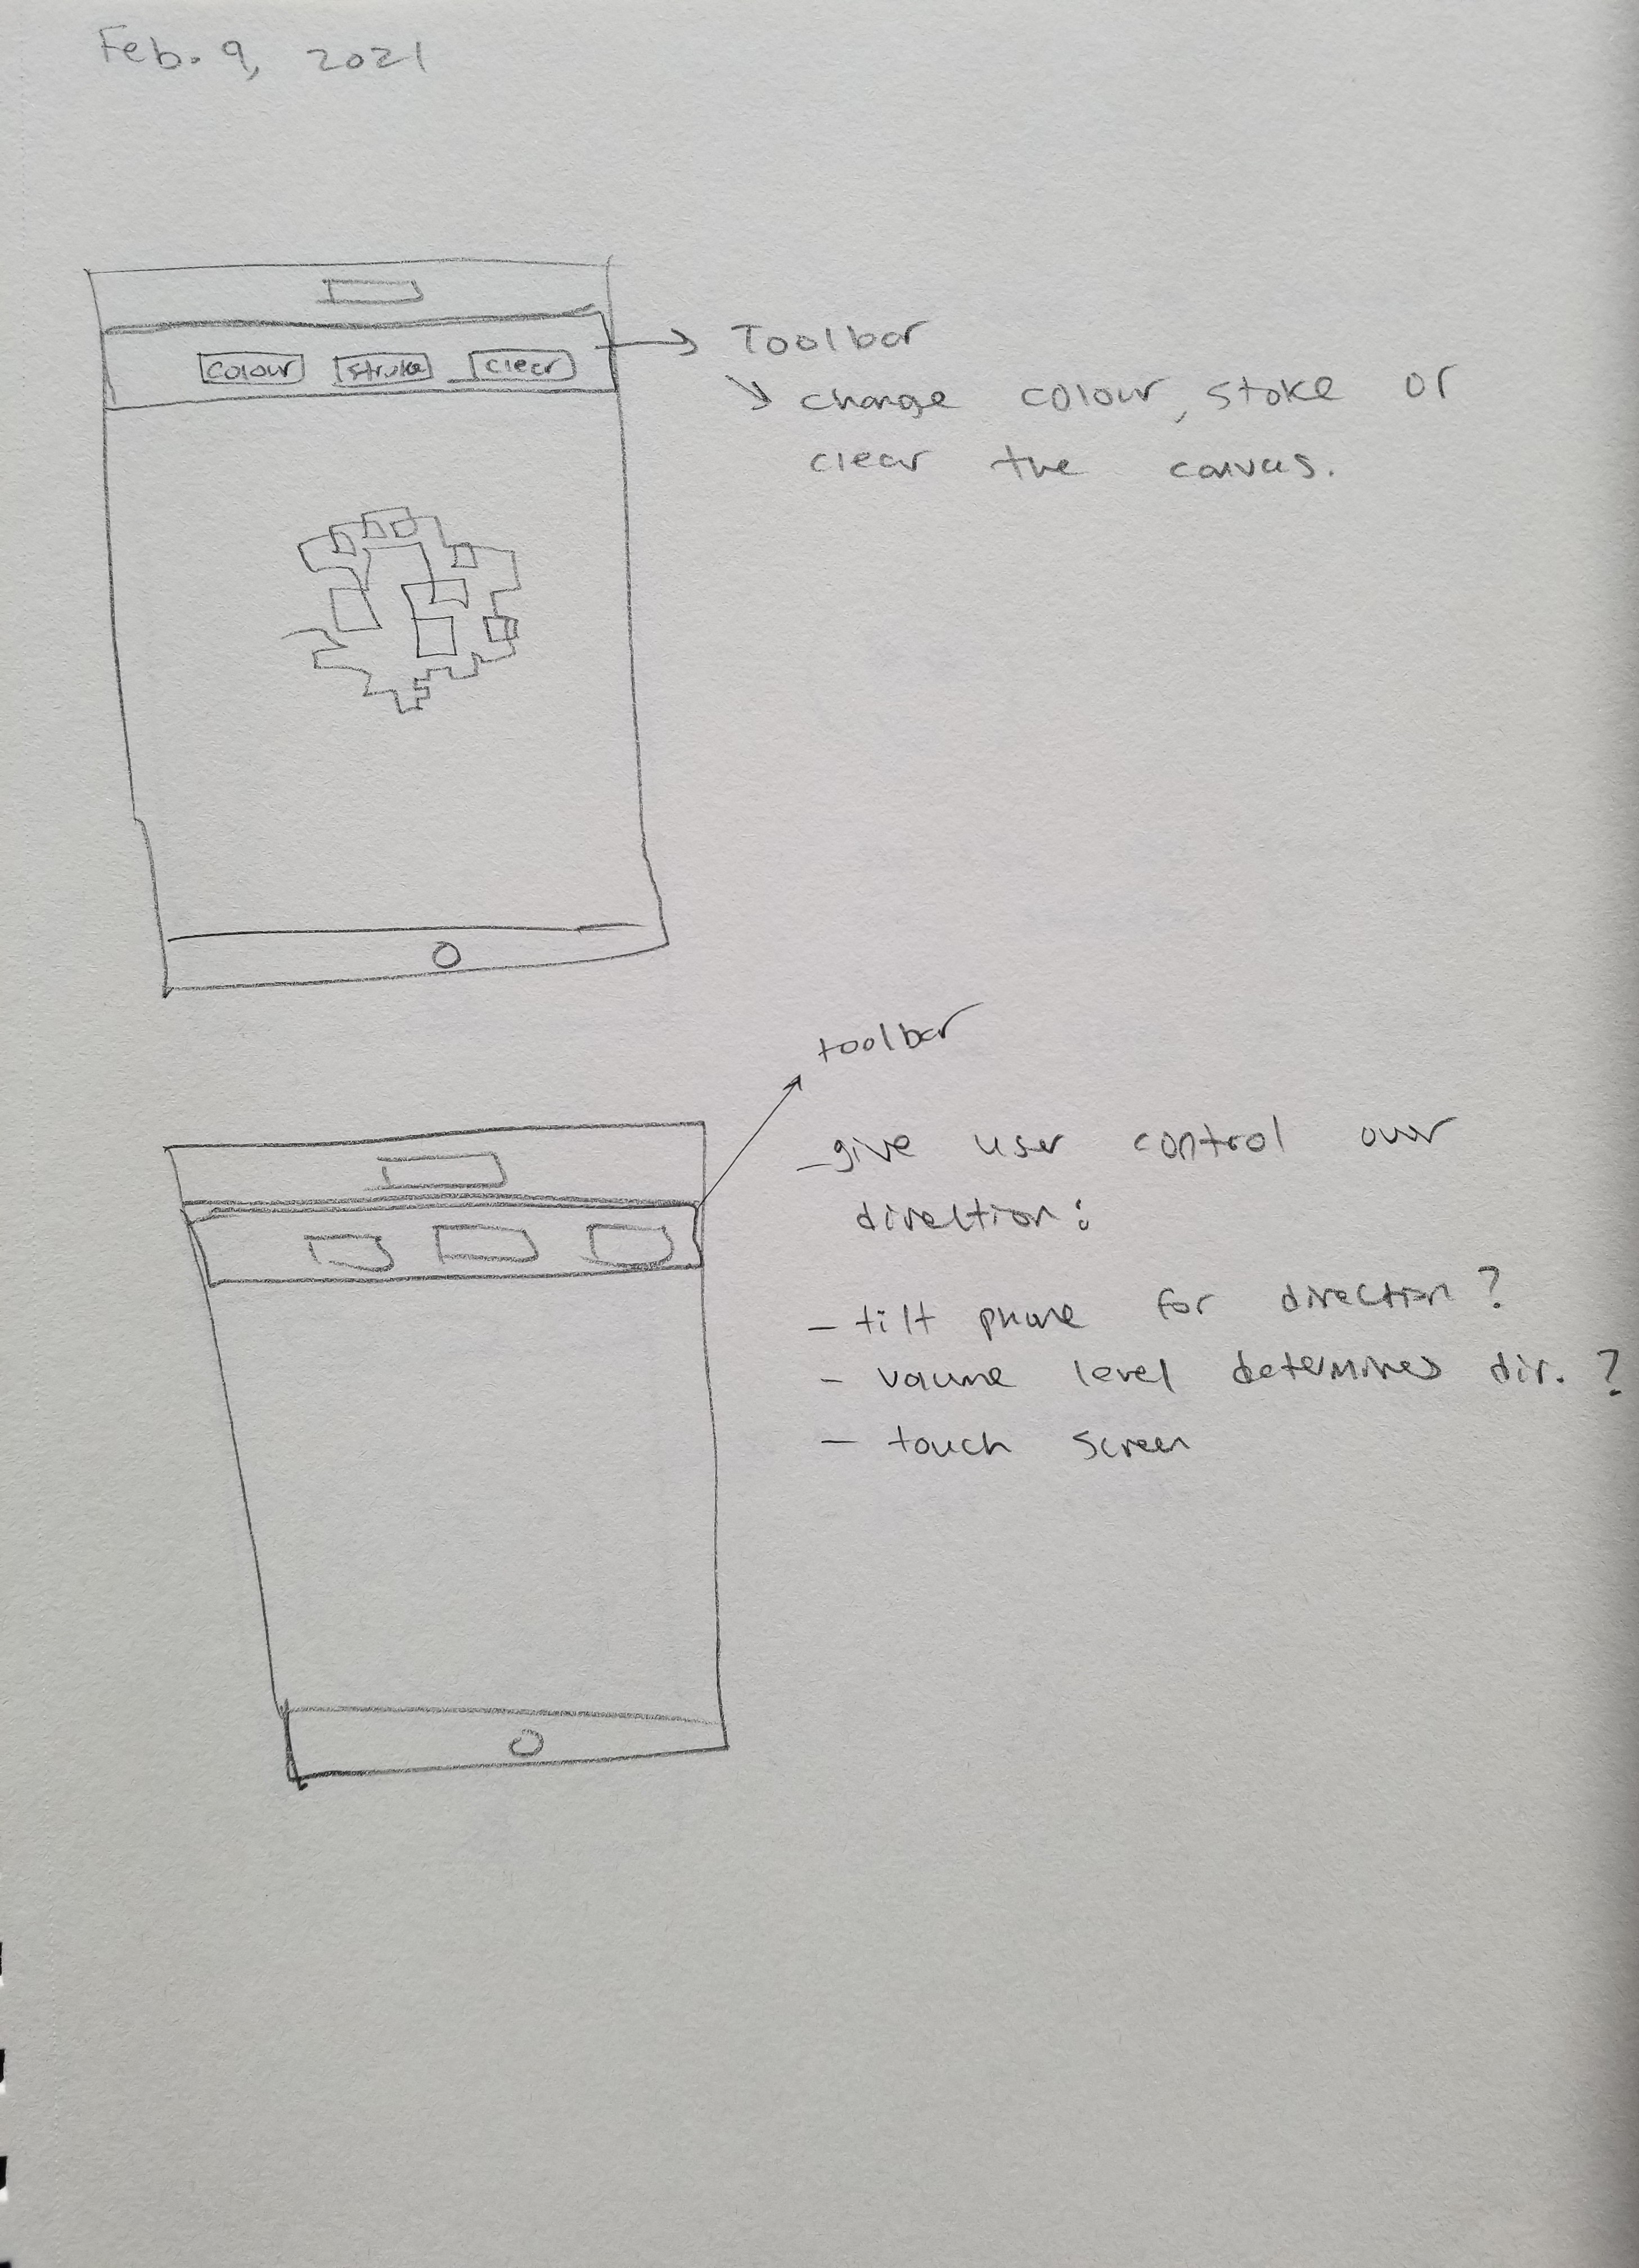 Feb. 9, 2021
colour stroke clear
Toolbar
change colour, stoke or
clear the canvas.
toolbar
- give user control over
direction:
- tilt phone for direction?
- volume level determines dir. ?
- touch screen